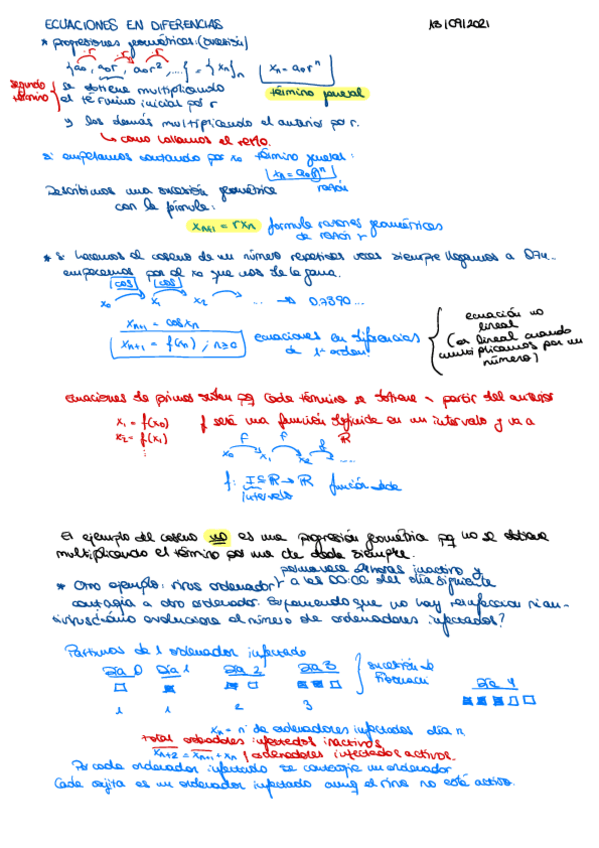 ECUACIONES EN DIFERENCIAS 13/09/2021
* progresiones geométricas: (sucesión)
·r ·r ·r
{a₀, a₀r, a₀r², ...} = {xₙ}ₙ xₙ = a₀rⁿ
segundo término { se obtiene multiplicando término general
el término inicial por r
y los demás multiplicando el anterior por r.
↳ como hallamos el resto.
si empezamos contando por x₀ término general:
xₙ = a₀rⁿ
Describimos una sucesión geométrica razón
con la fórmula:
xₙ₊₁ = rxₙ formula razones geométricas
de razón r
* Si hacemos el coseno de un número repetidas veces siempre llegamos a 0.74..
empecemos por el x₀ que nos de la gana.
cos cos
x₀ x₁ x₂ ... → 0.7390...
xₙ₊₁ = cos xₙ
xₙ₊₁ = f(xₙ); n≥0 ecuaciones en diferencias
de 1er orden
{ ecuación no
lineal
(es lineal cuando
multiplicamos por un
número)
ecuaciones de primer orden pq cada término se obtiene a partir del anterior
x₁ = f(x₀) f será una función definida en un intervalo y va a
x₂ = f(x₁) ℝ
⋮
f f f
x₀ x₁ x₂ ....
f: I⊆ℝ → ℝ función
intervalo
El ejemplo del coseno no es una progresión geométrica pq no se obtiene
multiplicando el término por una cte dada siempre.
permanece 24 horas inactivo y
* Otro ejemplo: virus ordenador a las 00:00 del día siguiente
contagia a otro ordenador. Suponiendo que no hay reinfeccion ni an-
tivirus ¿cómo evoluciona el número de ordenadores infectados?
Partimos de 1 ordenador infectado
Día 0 Día 1 Día 2 Día 3 } sucesión de
Fibonacci
Día 4
1 1 2 3
xₙ = nº de ordenadores infectados día n.
total ordenadores infectados inactivos
xₙ₊₂ = xₙ₊₁ + xₙ ordenadores infectados activos.
Por cada ordenador infectado se contagia un ordenador
Cada cajita es un ordenador infectado aunq el virus no está activo.